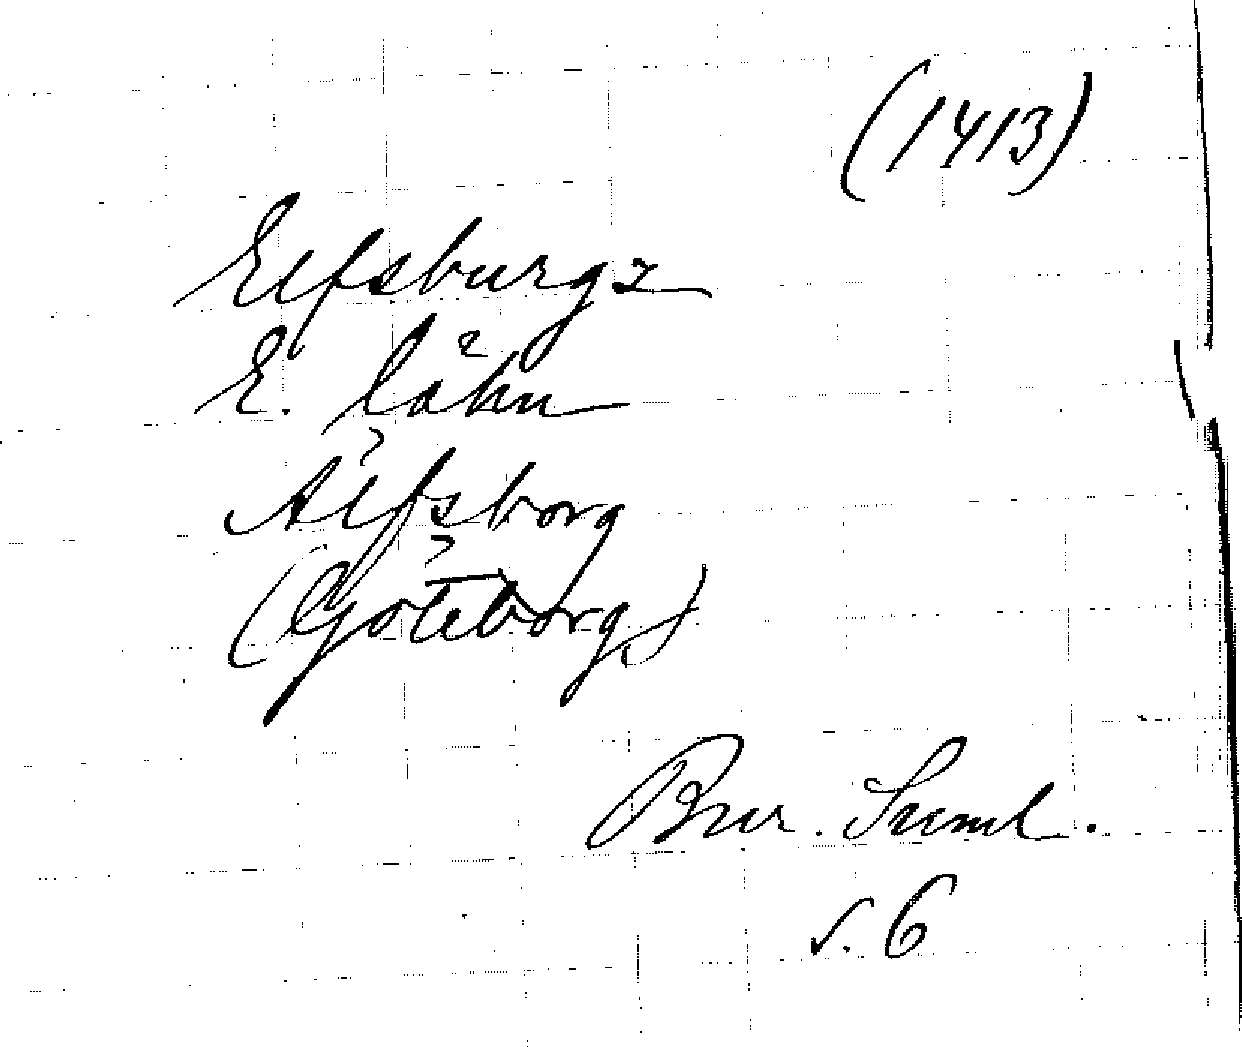 (1413)
Elfsburgz
E. lähn
Älfsborg
(Göteborg)
Bur. Saml.
s. 6